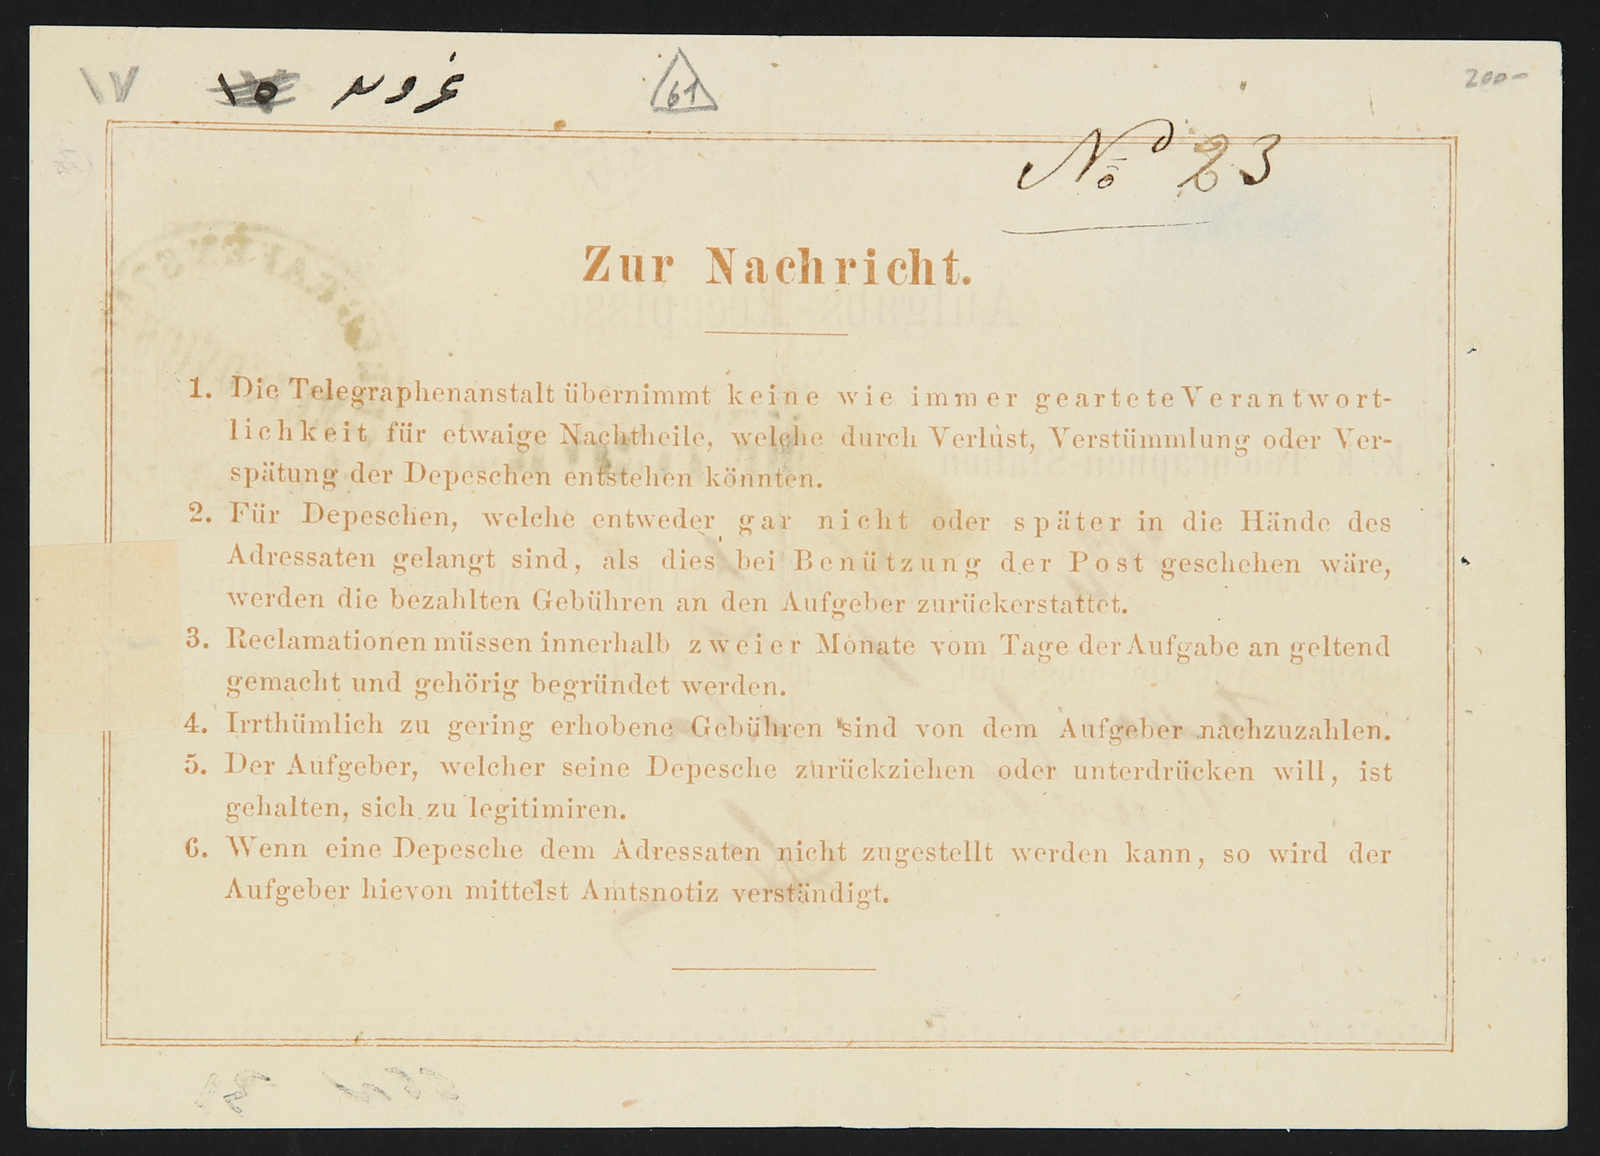 ١٧ ١٥ غروند 61 200-
No 23
Zur Nachricht.
1. Die Telegraphenanstalt übernimmt keine wie immer geartete Verantwort-
lichkeit für etwaige Nachtheile, welche durch Verlust, Verstümmlung oder Ver-
spätung der Depeschen entstehen könnten.
2. Für Depeschen, welche entweder gar nicht oder später in die Hände des
Adressaten gelangt sind, als dies bei Benützung der Post geschehen wäre,
werden die bezahlten Gebühren an den Aufgeber zurückerstattet.
3. Reclamationen müssen innerhalb zweier Monate vom Tage der Aufgabe an geltend
gemacht und gehörig begründet werden.
4. Irrthümlich zu gering erhobene Gebühren sind von dem Aufgeber nachzuzahlen.
5. Der Aufgeber, welcher seine Depesche zurückziehen oder unterdrücken will, ist
gehalten, sich zu legitimiren.
6. Wenn eine Depesche dem Adressaten nicht zugestellt werden kann, so wird der
Aufgeber hievon mittelst Amtsnotiz verständigt.